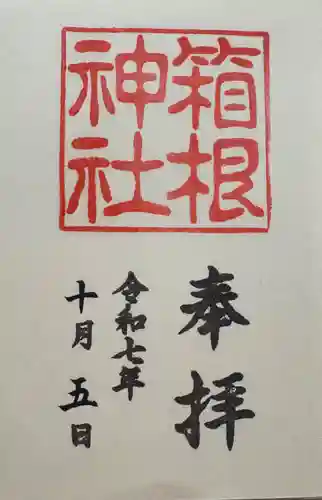 箱根
神社
奉拝
令和七年
十月五日